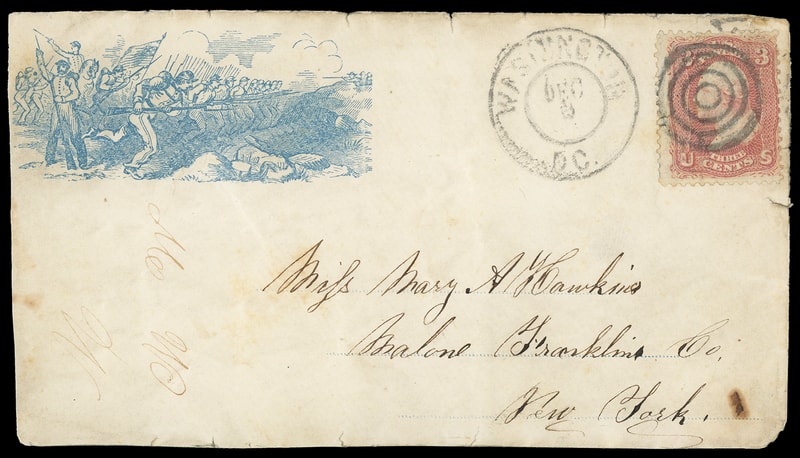 WASHINGTON
DEC
D.C.
3 3
U S
CENTS
Miss Mary A Hawkins
Malone Franklin Co.
New York.